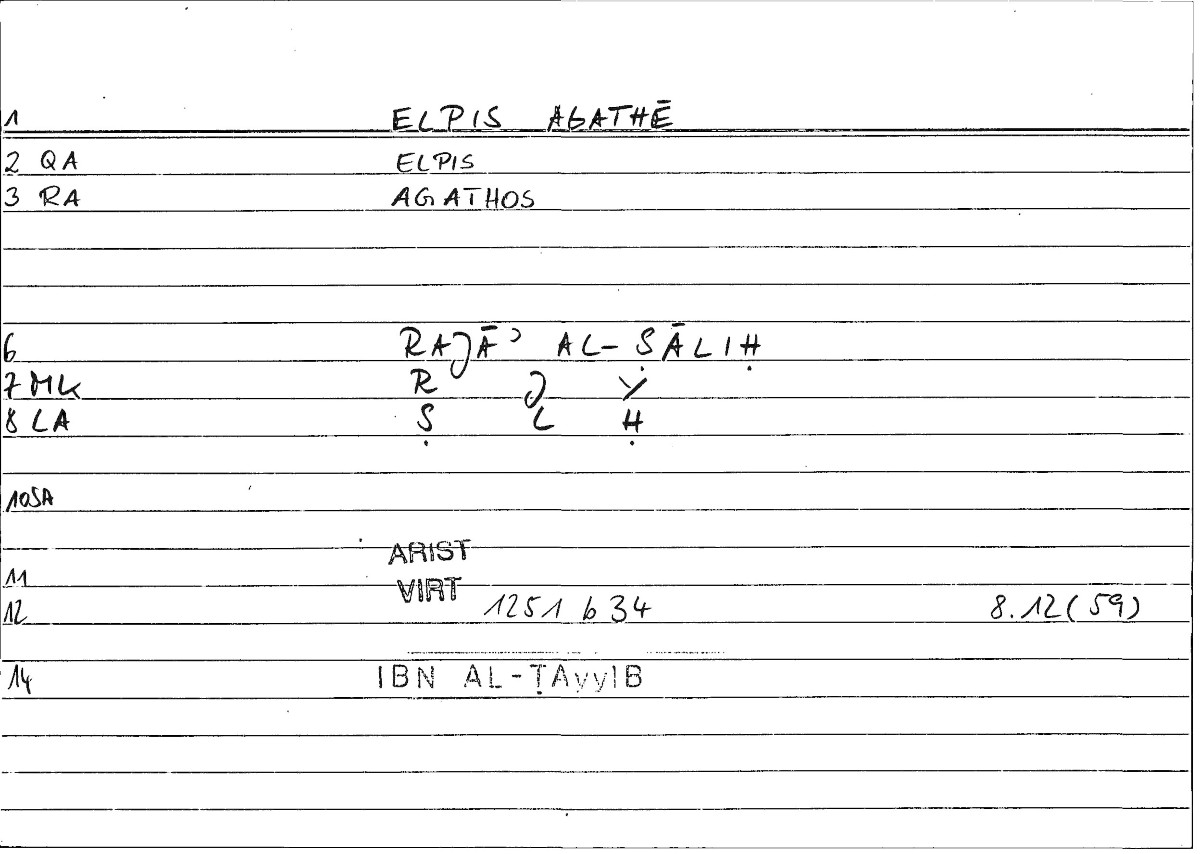 1 ELPIS AGATHĒ
2 QA ELPIS
3 RA AGATHOS
6 RAJĀʾ AL-ṢĀLIḤ
7 MK R J Y
8 LA Ṣ L Ḥ
10 SA
ARIST
11 VIRT
12 1251 b 34 8.12(59)
14 IBN AL-ṬAyyIB